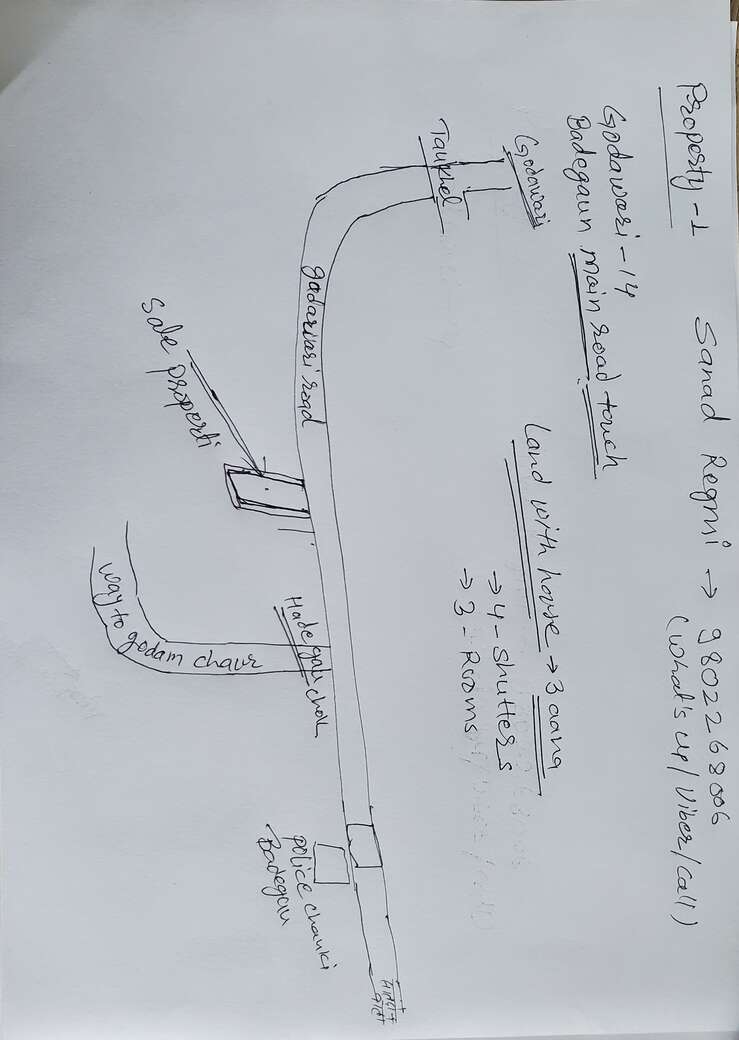 Property-1
Sanad Regmi → 9802268006
(what's up/Viber/Call)
Godawari-14
Badegaun main road touch
Land with house → 3 aana
→ 4-Shutters
→ 3-Rooms
Godawari
Taukhel
godarwari road
Sale properti
Hadegau chok
way to godam chaur
police chauki
Badegau